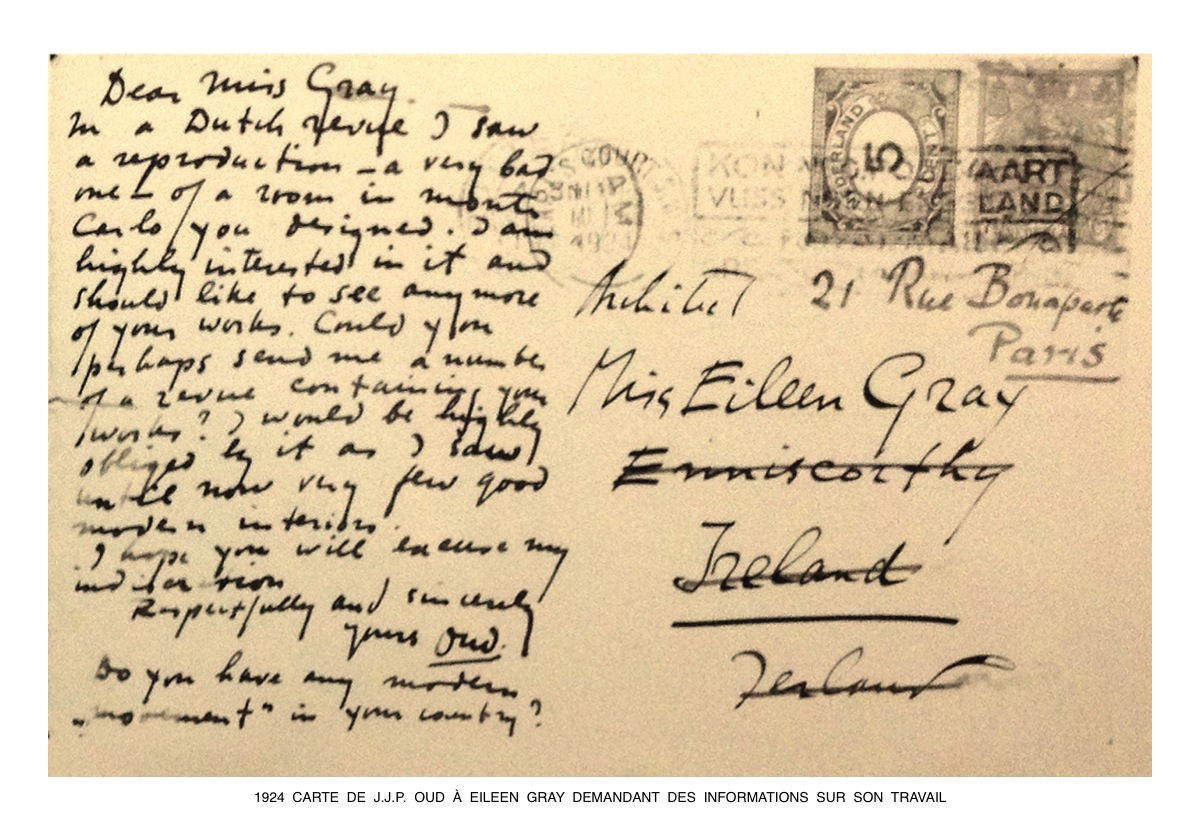 Dear Miss Gray.
In a Dutch revue I saw
a reproduction – a very bad
one – of a room in monte
Carlo you designed. I am
highly interested in it and
should like to see any more
of your works. Could you
perhaps send me a number
of a revue containing your
works? I would be highly
obliged by it as I saw
until now very few good
modern interiors.
I hope you will excuse my
Respectfully and sincerely
yours Oud.
Do you have any modern
„movement" in your country?
NEDERLAND
5
CENT
AART
LAND
1924
Architect 21 Rue Bonaparte
Paris
Miss Eileen Gray
Enniscorthy
Ireland
1924 CARTE DE J.J.P. OUD À EILEEN GRAY DEMANDANT DES INFORMATIONS SUR SON TRAVAIL